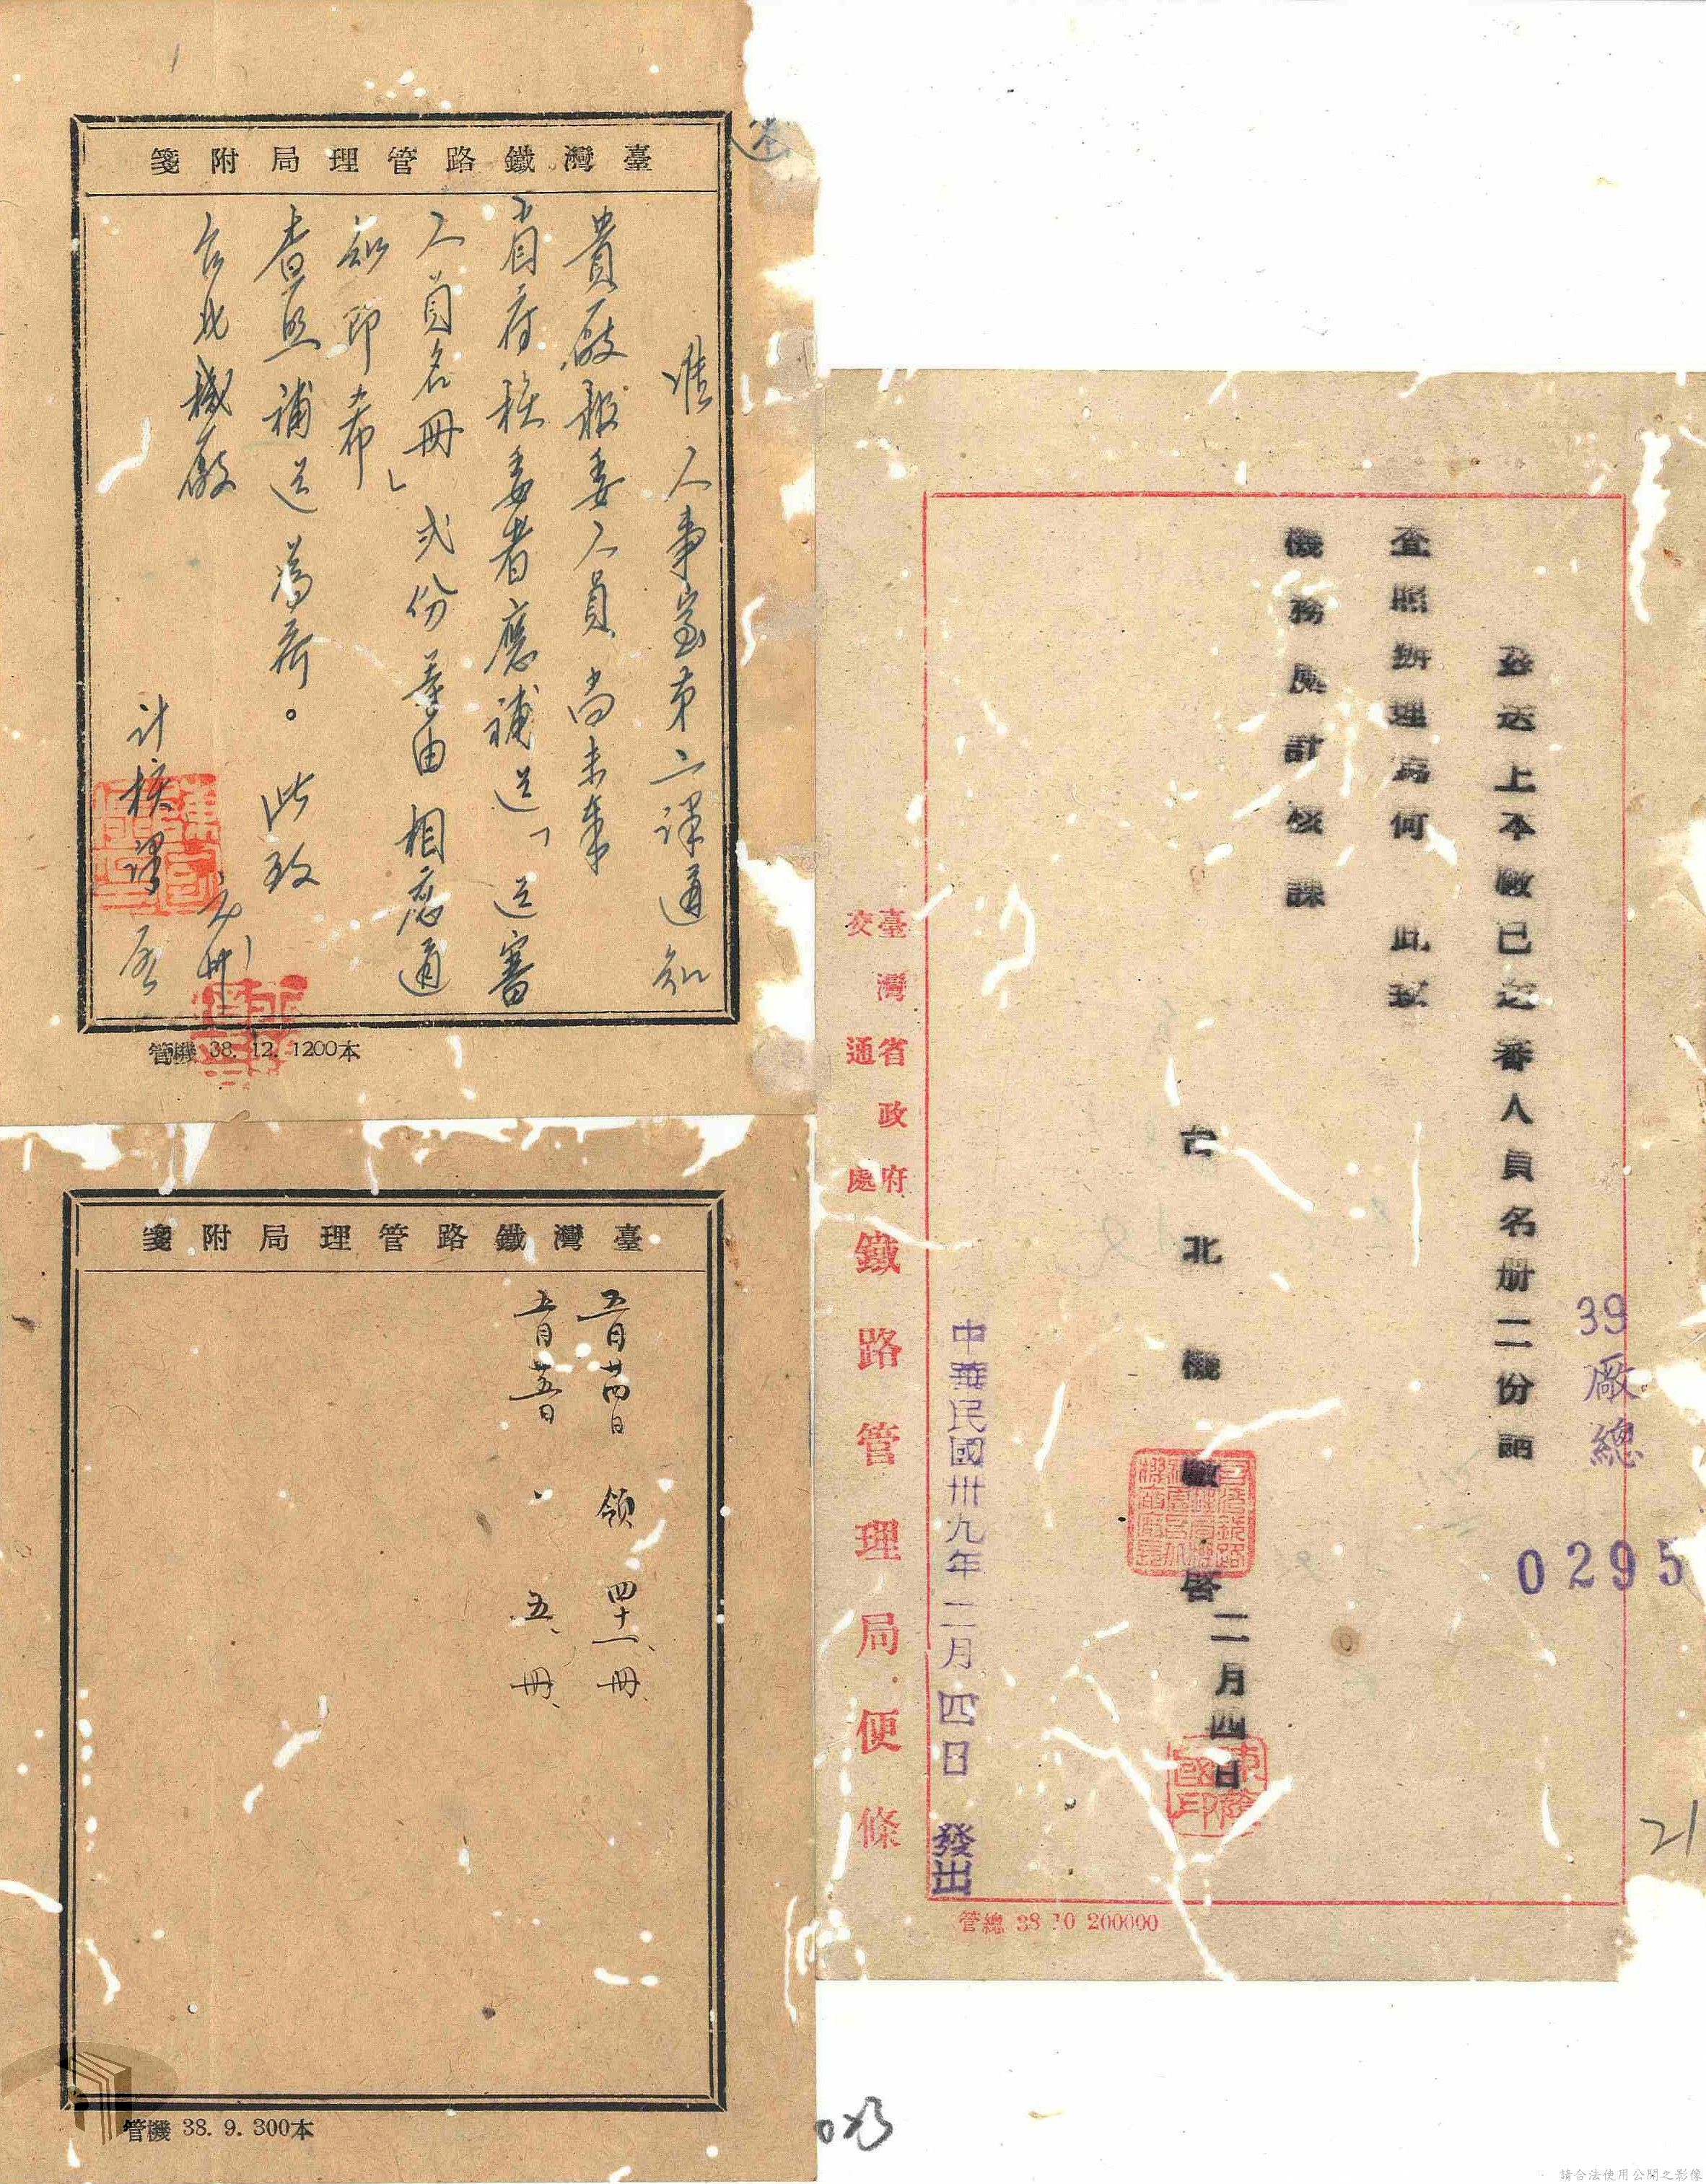 臺灣鐵路管理局附箋
准人事室第二課通知
貴廠報委人員尚未奉
省府核委者應補送「送審
人員名冊」弍份等由相應通
知即希
查照補送為荷。此致
台北機廠
計核課啓
管機 38. 12. 1200本
臺灣鐵路管理局附箋
五月廿四日 領 四十一冊
五月廿五日 〃 五冊
管機 38. 9. 300本
39
廠
總
0295
茲送上本廠已送審人員名册二份請
查照辦理為荷 此致
機務處計核課
台北機廠啓
二月四日
中華民國卅九年二月四日 發出
臺灣省政府
交通處
鐵路管理局便條
管總 38 10 200000
21
請合法使用公開之影像